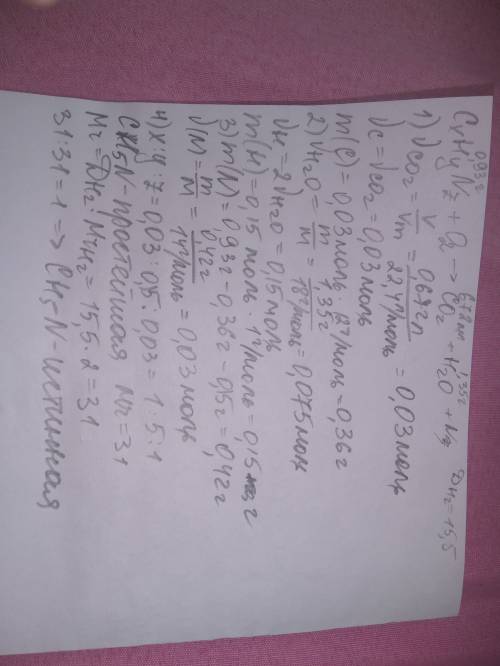 0,93г 672мл 1,35г
CxHyNz + O2 → CO2 + H2O + N2 DH2=15,5
1) νCO2 = V/Vm = 0,672л/22,4л/моль = 0,03моль
νC = νCO2 = 0,03моль
m(C) = 0,03моль · 12г/моль = 0,36г
2) νH2O = m/M = 1,35г/18г/моль = 0,075моль
νH = 2νH2O = 0,15моль
m(H) = 0,15 моль · 1г/моль = 0,15 г
3) m(N) = 0,93г - 0,36г - 0,15г = 0,42г
ν(N) = m/M = 0,42г/14г/моль = 0,03моль
4) x:y:z = 0,03:0,15:0,03 = 1:5:1
CH5N - простейшая Mr = 31
Mr = DH2 · MrH2 = 15,5 · 2 = 31
31:31 = 1 => CH5N - истинная